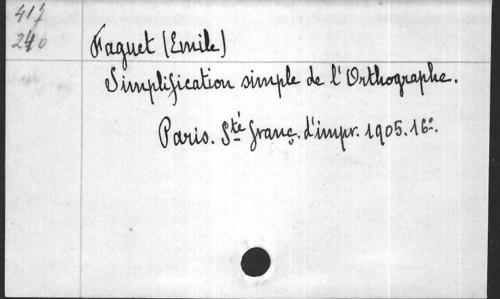 417
240
Faguet (Emile)
Simplification simple de l'Orthographe.
Paris. Sté franç. d'impr. 1905. 16º.